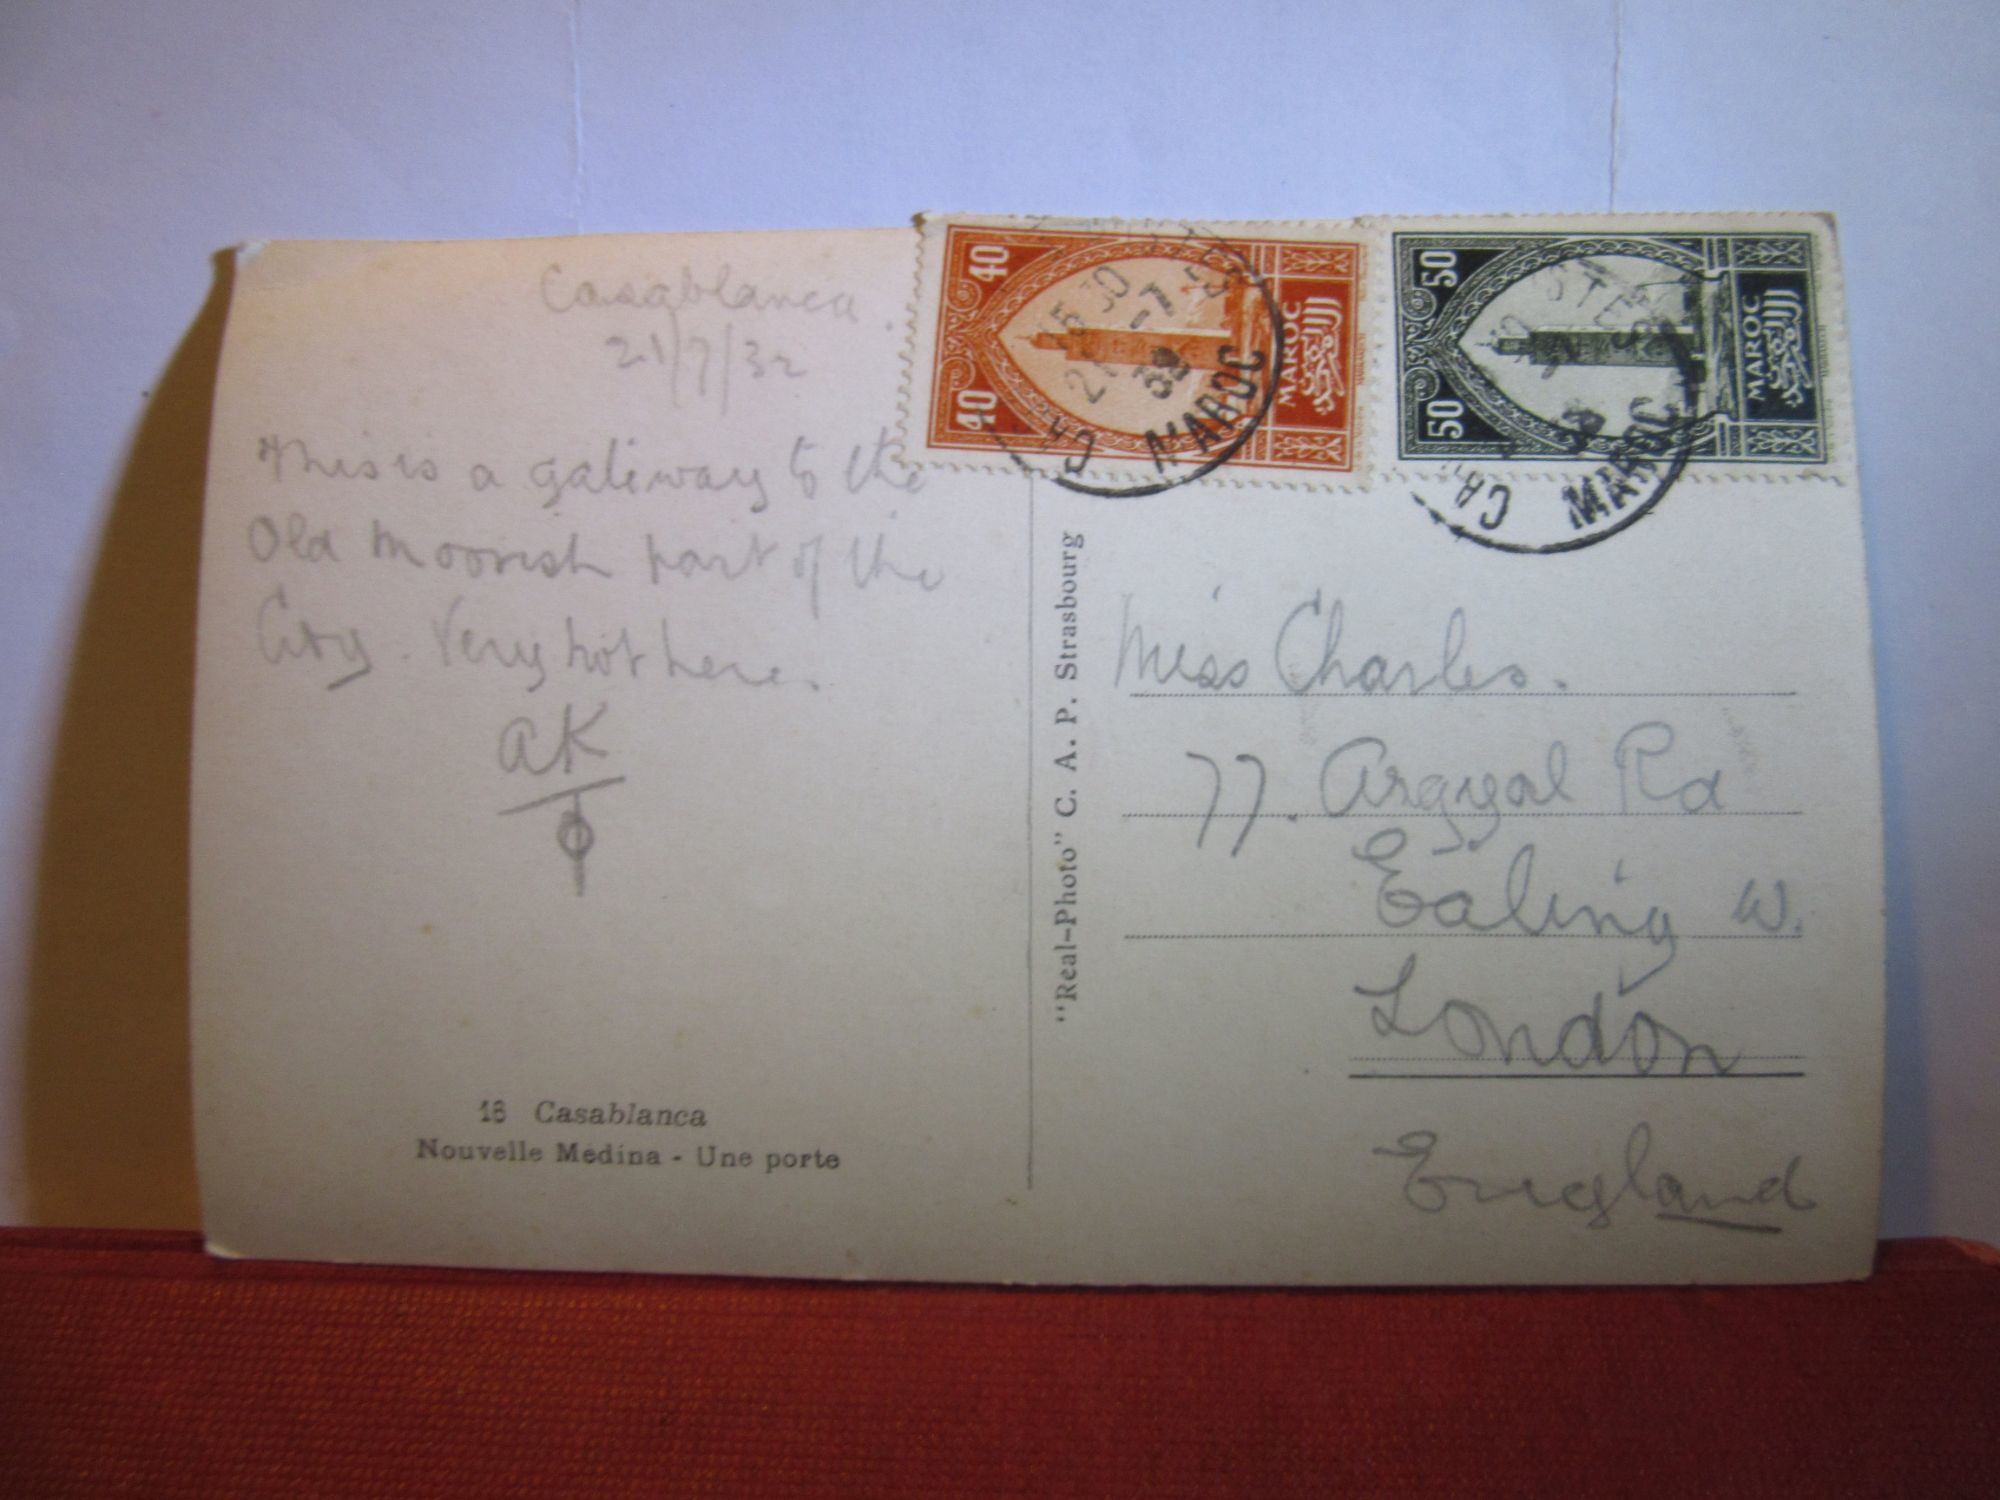 Casablanca
21/7/32
This is a gateway to the
Old Moorish part of the
City. Very hot here.
AK
18 Casablanca
Nouvelle Médina - Une porte
"Real-Photo" C. A. P. Strasbourg
40 40
MAROC
15 30
21 -7
32
MAROC
50 50
MAROC
32
MAROC
Miss Charles.
77. Argyal Rd
Ealing W.
London
England